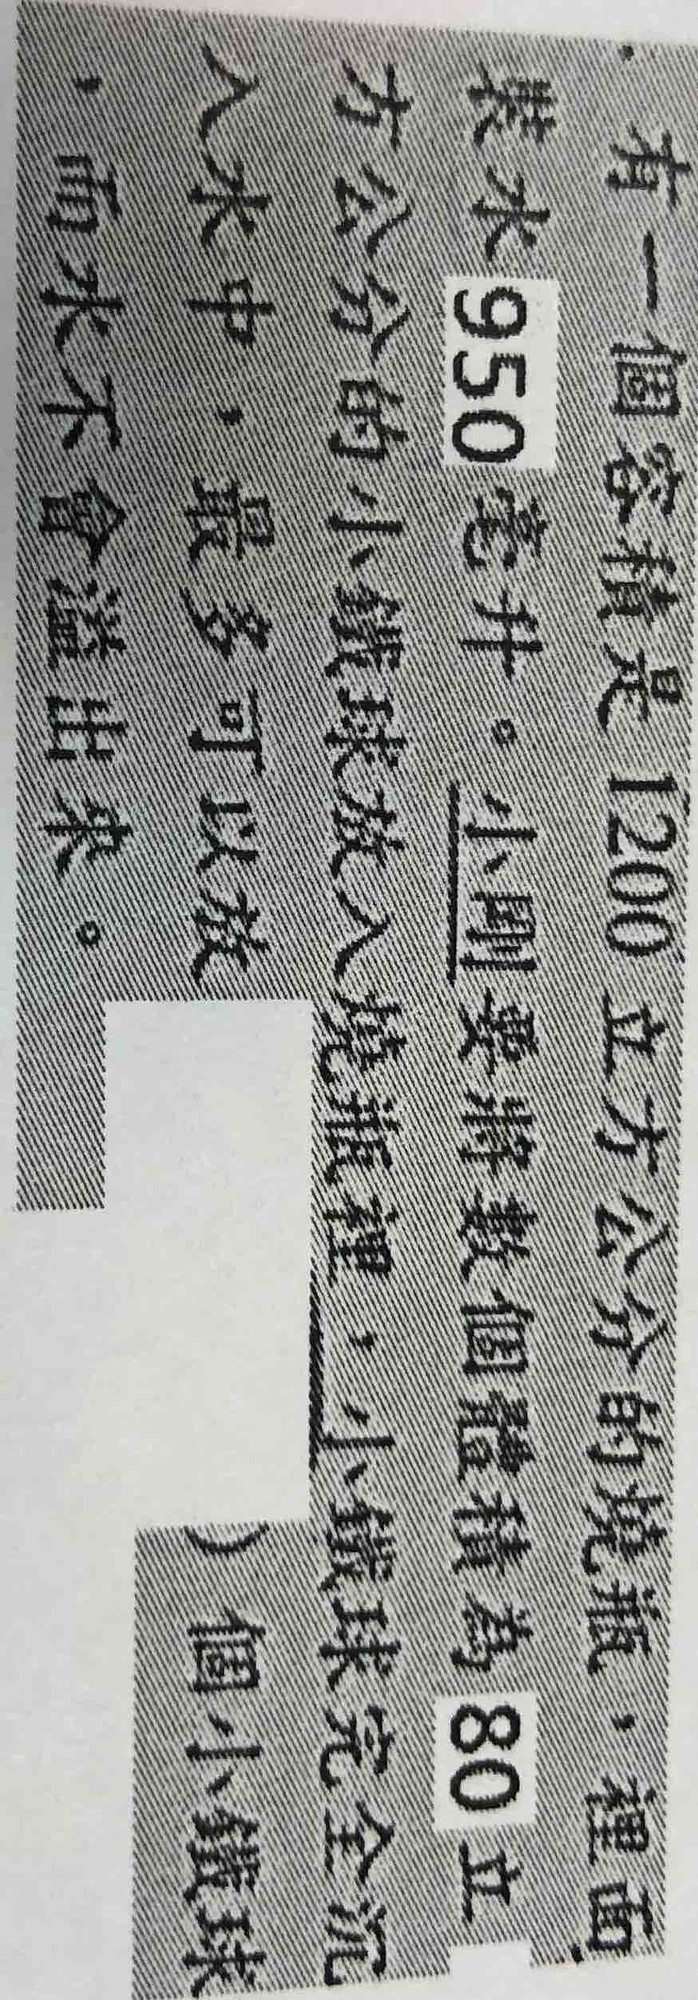 有一個容積是1200立方公分的燒瓶，裡面
裝水950毫升。小剛要將數個體積為80立
方公分的小鐵球放入燒瓶裡，小鐵球完全沉
入水中，最多可以放 ）個小鐵球
，而水不會溢出來。